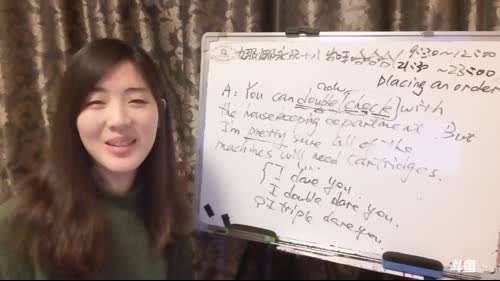 娜娜永远十八岁哈哈哈哈 9:30~12:00
21:30~23:00
placing an order
Color
A: You can double check with
the housekeeping department. But
I'm pretty sure all of the
machines will need cartridges.
I dare you.
I double dare you.
I triple dare you.
斗鱼